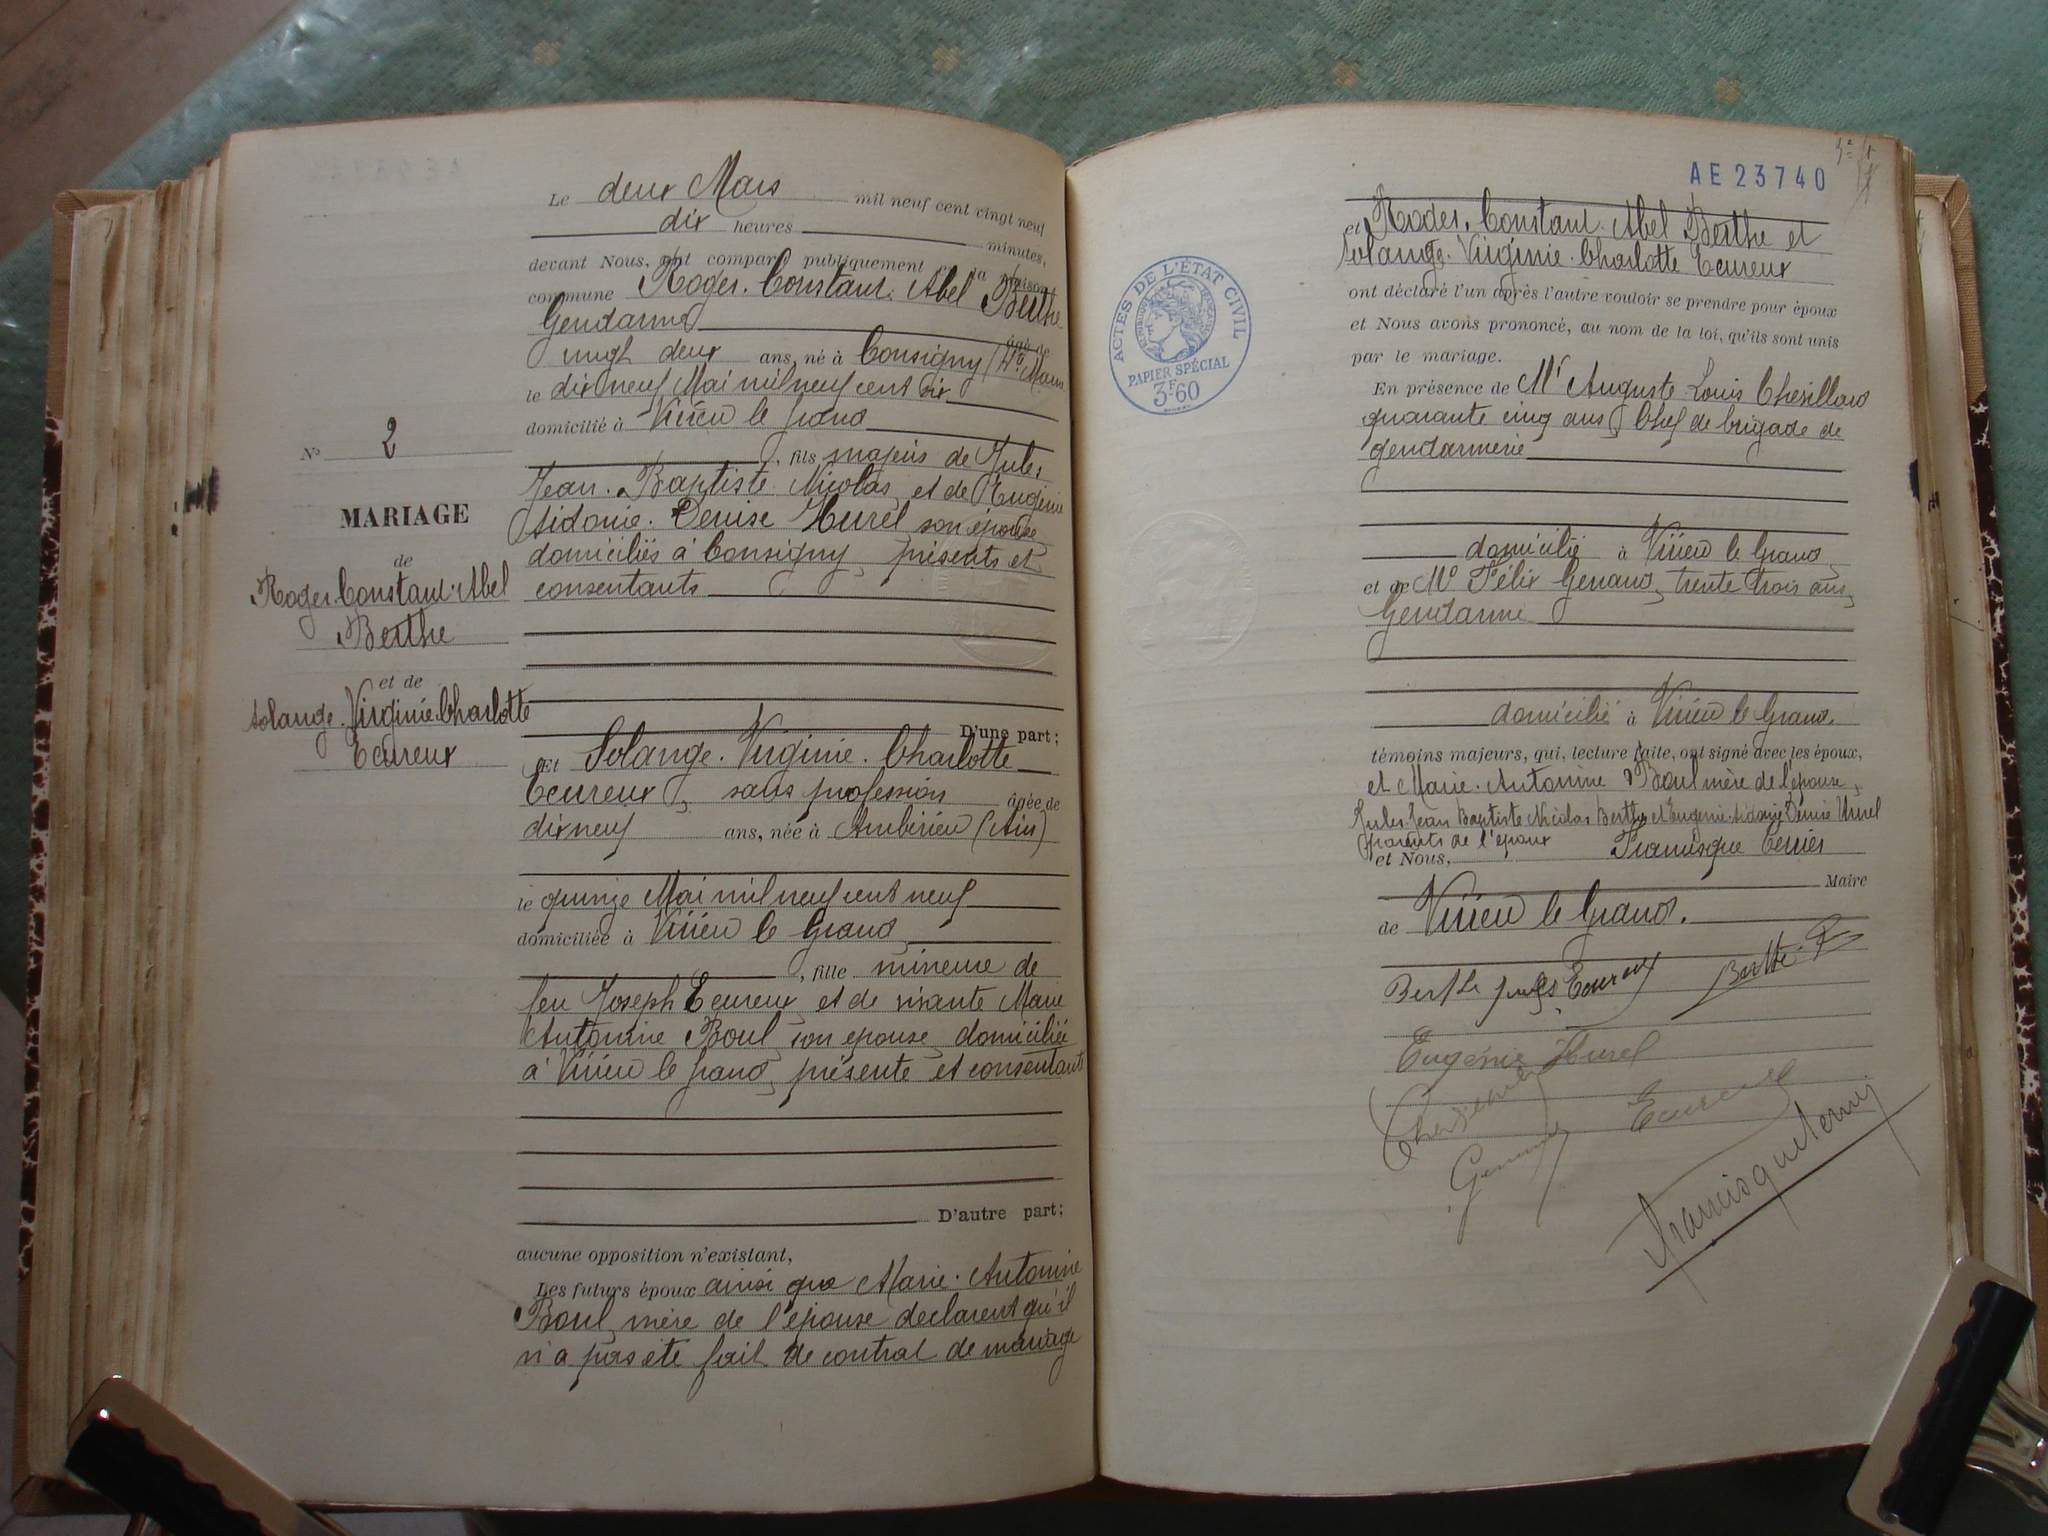 Le deux Mars mil neuf cent vingt neuf
dix heures minutes,
devant Nous, ont comparu publiquement en la maison
commune Roger. Constant. Abel Berthe
Gendarme âgé de
vingt deux ans, né à Consigny (Hte Marne
le dix neuf Mai mil neuf cent six
domicilié à Virieu le grand
, fils majeur de Jules
Jean. Baptiste Nicolas et de Eugénie
Sidonie. Denise Hurel son épouse
domiciliés à Consigny, présents et
consentants
D'une part;
Et Solange. Virginie. Charlotte
Ecureux, sans profession âgée de
dix neuf ans, née à Ambérieu (Ain)
le quinze Mai mil neuf cent neuf
domiciliée à Virieu le Grand
, fille mineure de
feu Joseph Ecureux et de vivante Marie
Antonine Boul son épouse domiciliée
à Virieu le grand, présente et consentante
D'autre part;
aucune opposition n'existant,
Les futurs époux ainsi que Marie. Antonine
Boul, mère de l'épouse déclarent qu'il
n'a pas été fait de contrat de mariage
No 2
MARIAGE
de
Roger. Constant. Abel
Berthe
et de
Solange. Virginie. Charlotte
Ecureux
AE 23740
et Roger. Constant. Abel Berthe et
Solange. Virginie. Charlotte Ecureux
ont déclaré l'un après l'autre vouloir se prendre pour époux
et Nous avons prononcé, au nom de la loi, qu'ils sont unis
par le mariage.
En présence de Mr Auguste Louis
quarante cinq ans, Chef de brigade de
gendarmerie
domicilié à Virieu le Grand
et de Mr Félix Genand, trente trois ans,
Gendarme
domicilié à Virieu le Grand.
témoins majeurs, qui, lecture faite, ont signé avec les époux,
et Marie. Antonine Boul mère de l'épouse,
Jules. Jean Baptiste Nicolas Berthe et Eugénie. Sidonie Denise Hurel
parents de l'époux
et Nous, Francisque
Maire
de Virieu le Grand.
Berthe Jules Ecureux Berthe R
Eugénie Hurel
Ecureux
Francisque
ACTES DE L'ÉTAT CIVIL
PAPIER SPÉCIAL
3F60